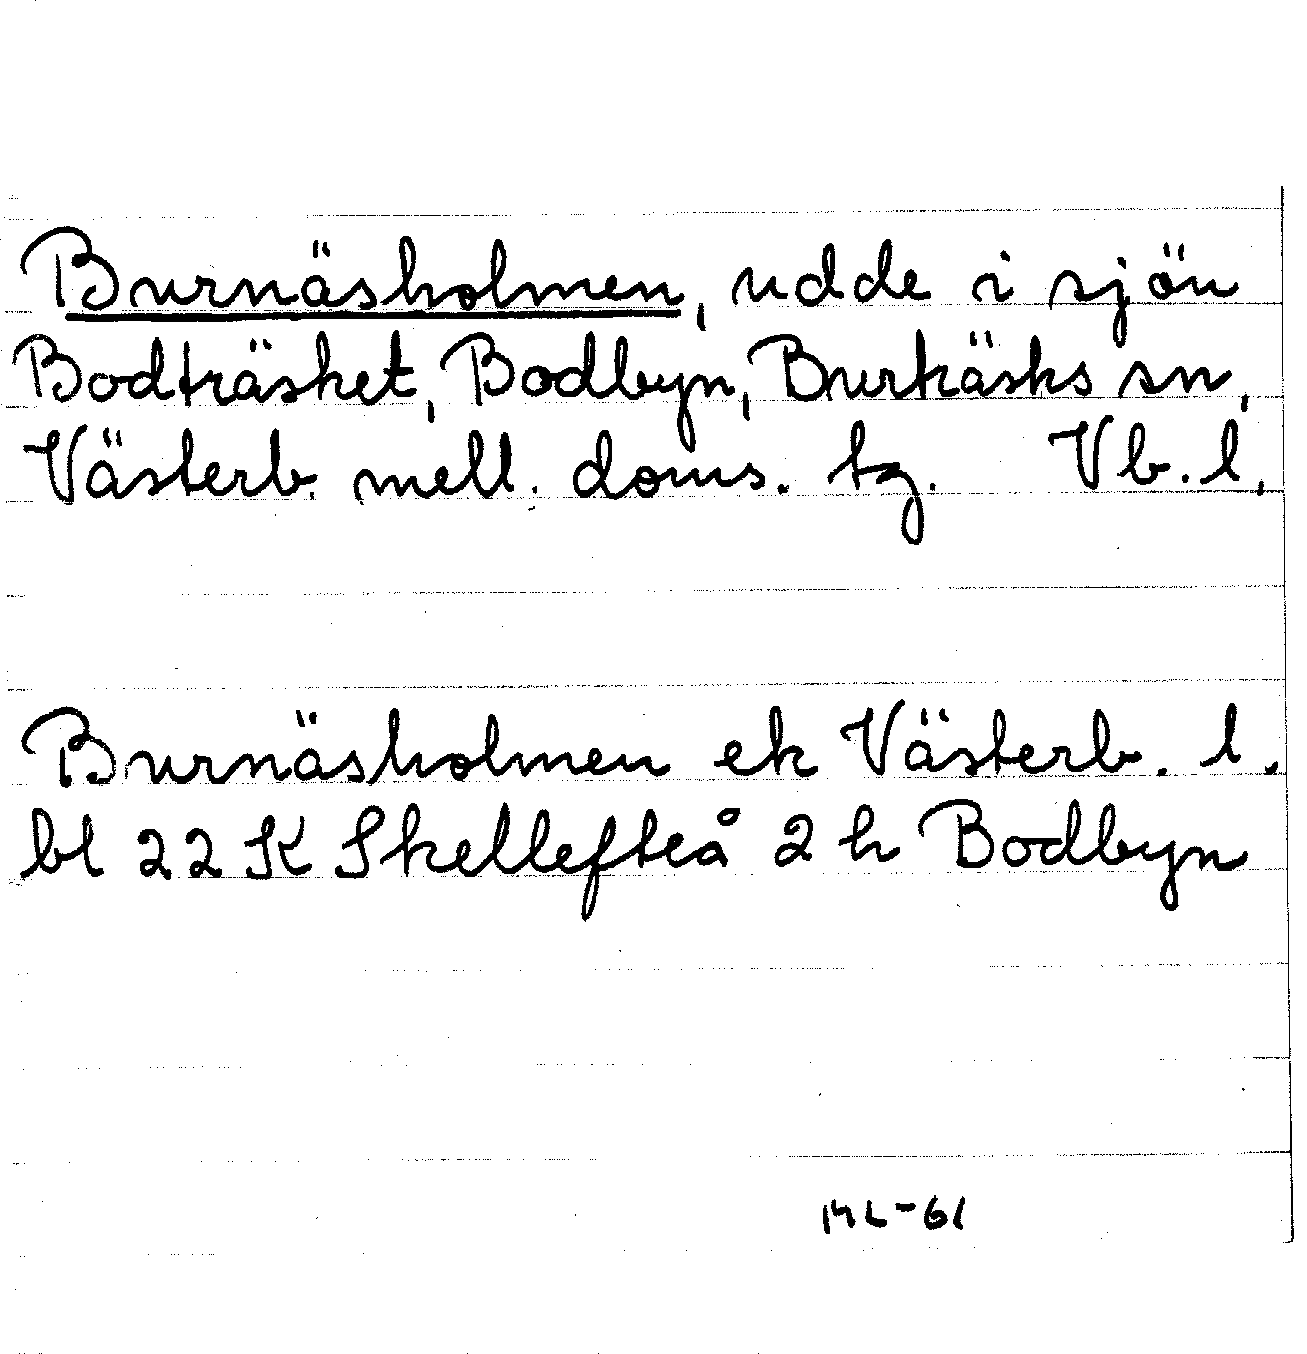 Burnäsholmen, udde i sjön
Bodträsket, Bodbyn, Burträsks sn,
Västerb. mell. doms. tg. Vb. l.
Burnäsholmen ek Västerb. l.
bl 22 K Skellefteå 2 h Bodbyn
ML-61